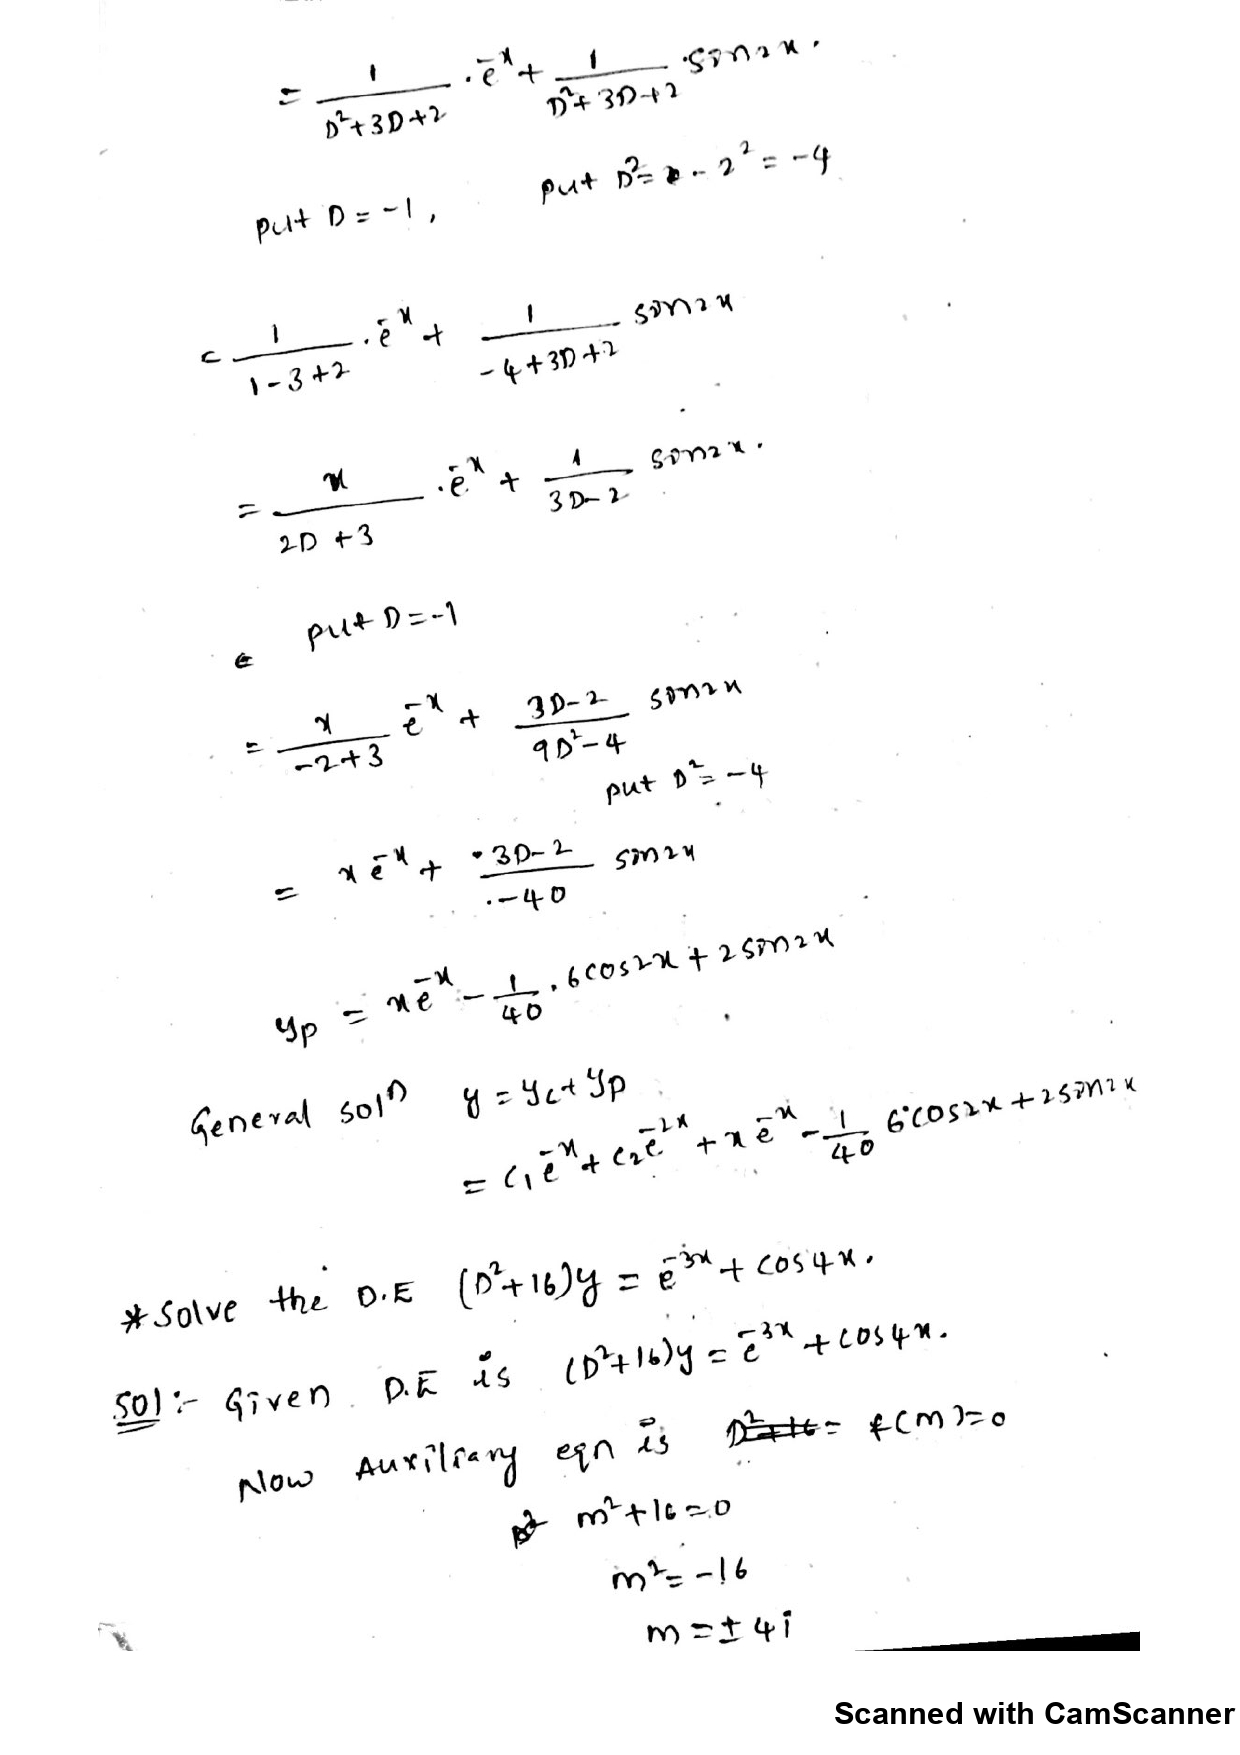 = 1/(D²+3D+2) . e^-x + 1/(D²+3D+2) . sin2x.
put D = -1, put D² = -2² = -4
= 1/(1-3+2) . e^-x + 1/(-4+3D+2) sin2x
= x/(2D+3) . e^-x + 1/(3D-2) sin2x.
put D = -1
= x/(-2+3) e^-x + (3D-2)/(9D²-4) sin2x
put D² = -4
= x e^-x + (3D-2)/(-40) sin2x
yp = x e^-x - 1/40 . 6cos2x + 2sin2x
General solⁿ y = yc + yp
= c₁e^-x + c₂e^-2x + x e^-x - 1/40 6cos2x + 2sin2x
* Solve the D.E (D²+16)y = e^-3x + cos4x.
Sol:- Given D.E is (D²+16)y = e^-3x + cos4x.
Now Auxiliary eqn is D²+16 = f(m)=0
m²+16=0
m² = -16
m = ± 4i
Scanned with CamScanner